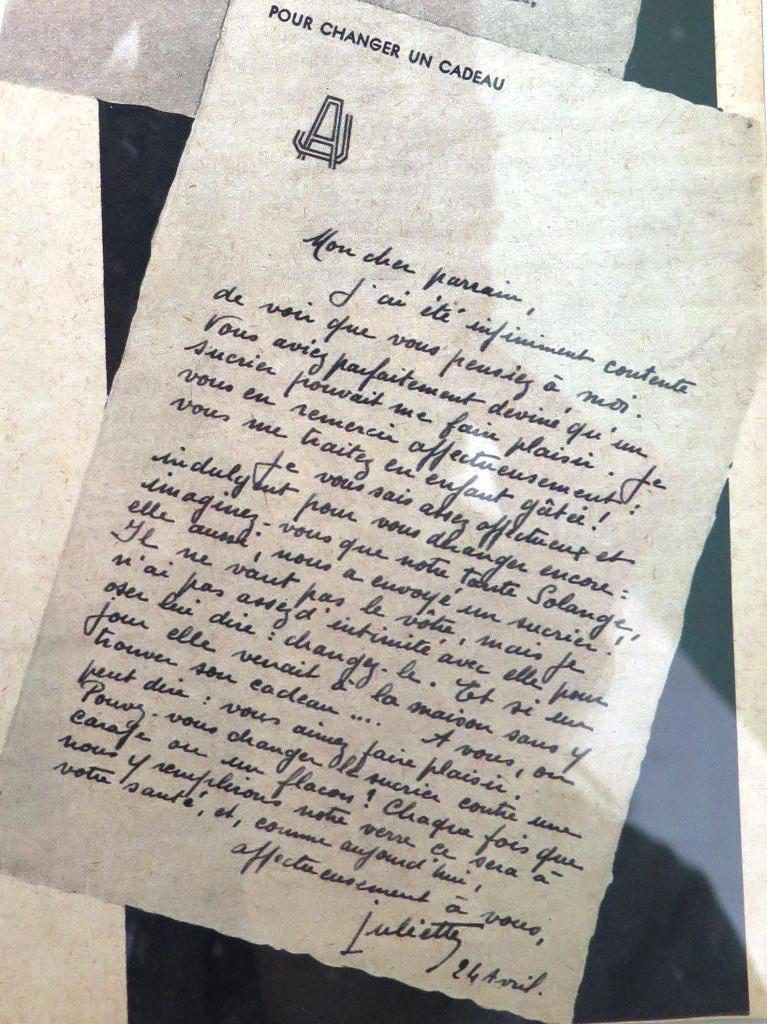 POUR CHANGER UN CADEAU
AJ
Mon cher parrain,
j'ai été infiniment contente
de voir que vous pensiez à moi.
Vous aviez parfaitement deviné qu'un
sucrier pouvait me faire plaisir. Je
vous en remercie affectueusement :
vous me traitez en enfant gâtée !
Je vous sais assez affectueux et
indulgent pour vous déranger encore :
imaginez-vous que notre tante Solange,
elle aussi, nous a envoyé un sucrier !
Il ne vaut pas le vôtre, mais je
n'ai pas assez d'intimité avec elle pour
oser lui dire : changez-le. Et si un
jour elle venait à la maison sans y
trouver son cadeau .... A vous, on
peut dire : vous aimez faire plaisir.
Pouvez-vous changer le sucrier contre une
carafe ou un flacon ? Chaque fois que
nous y remplirons notre verre ce sera à
votre santé, et, comme aujourd'hui,
affectueusement à vous,
Juliette
24 Avril.